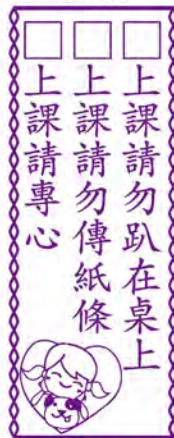 □上課請勿趴在桌上
□上課請勿傳紙條
□上課請專心